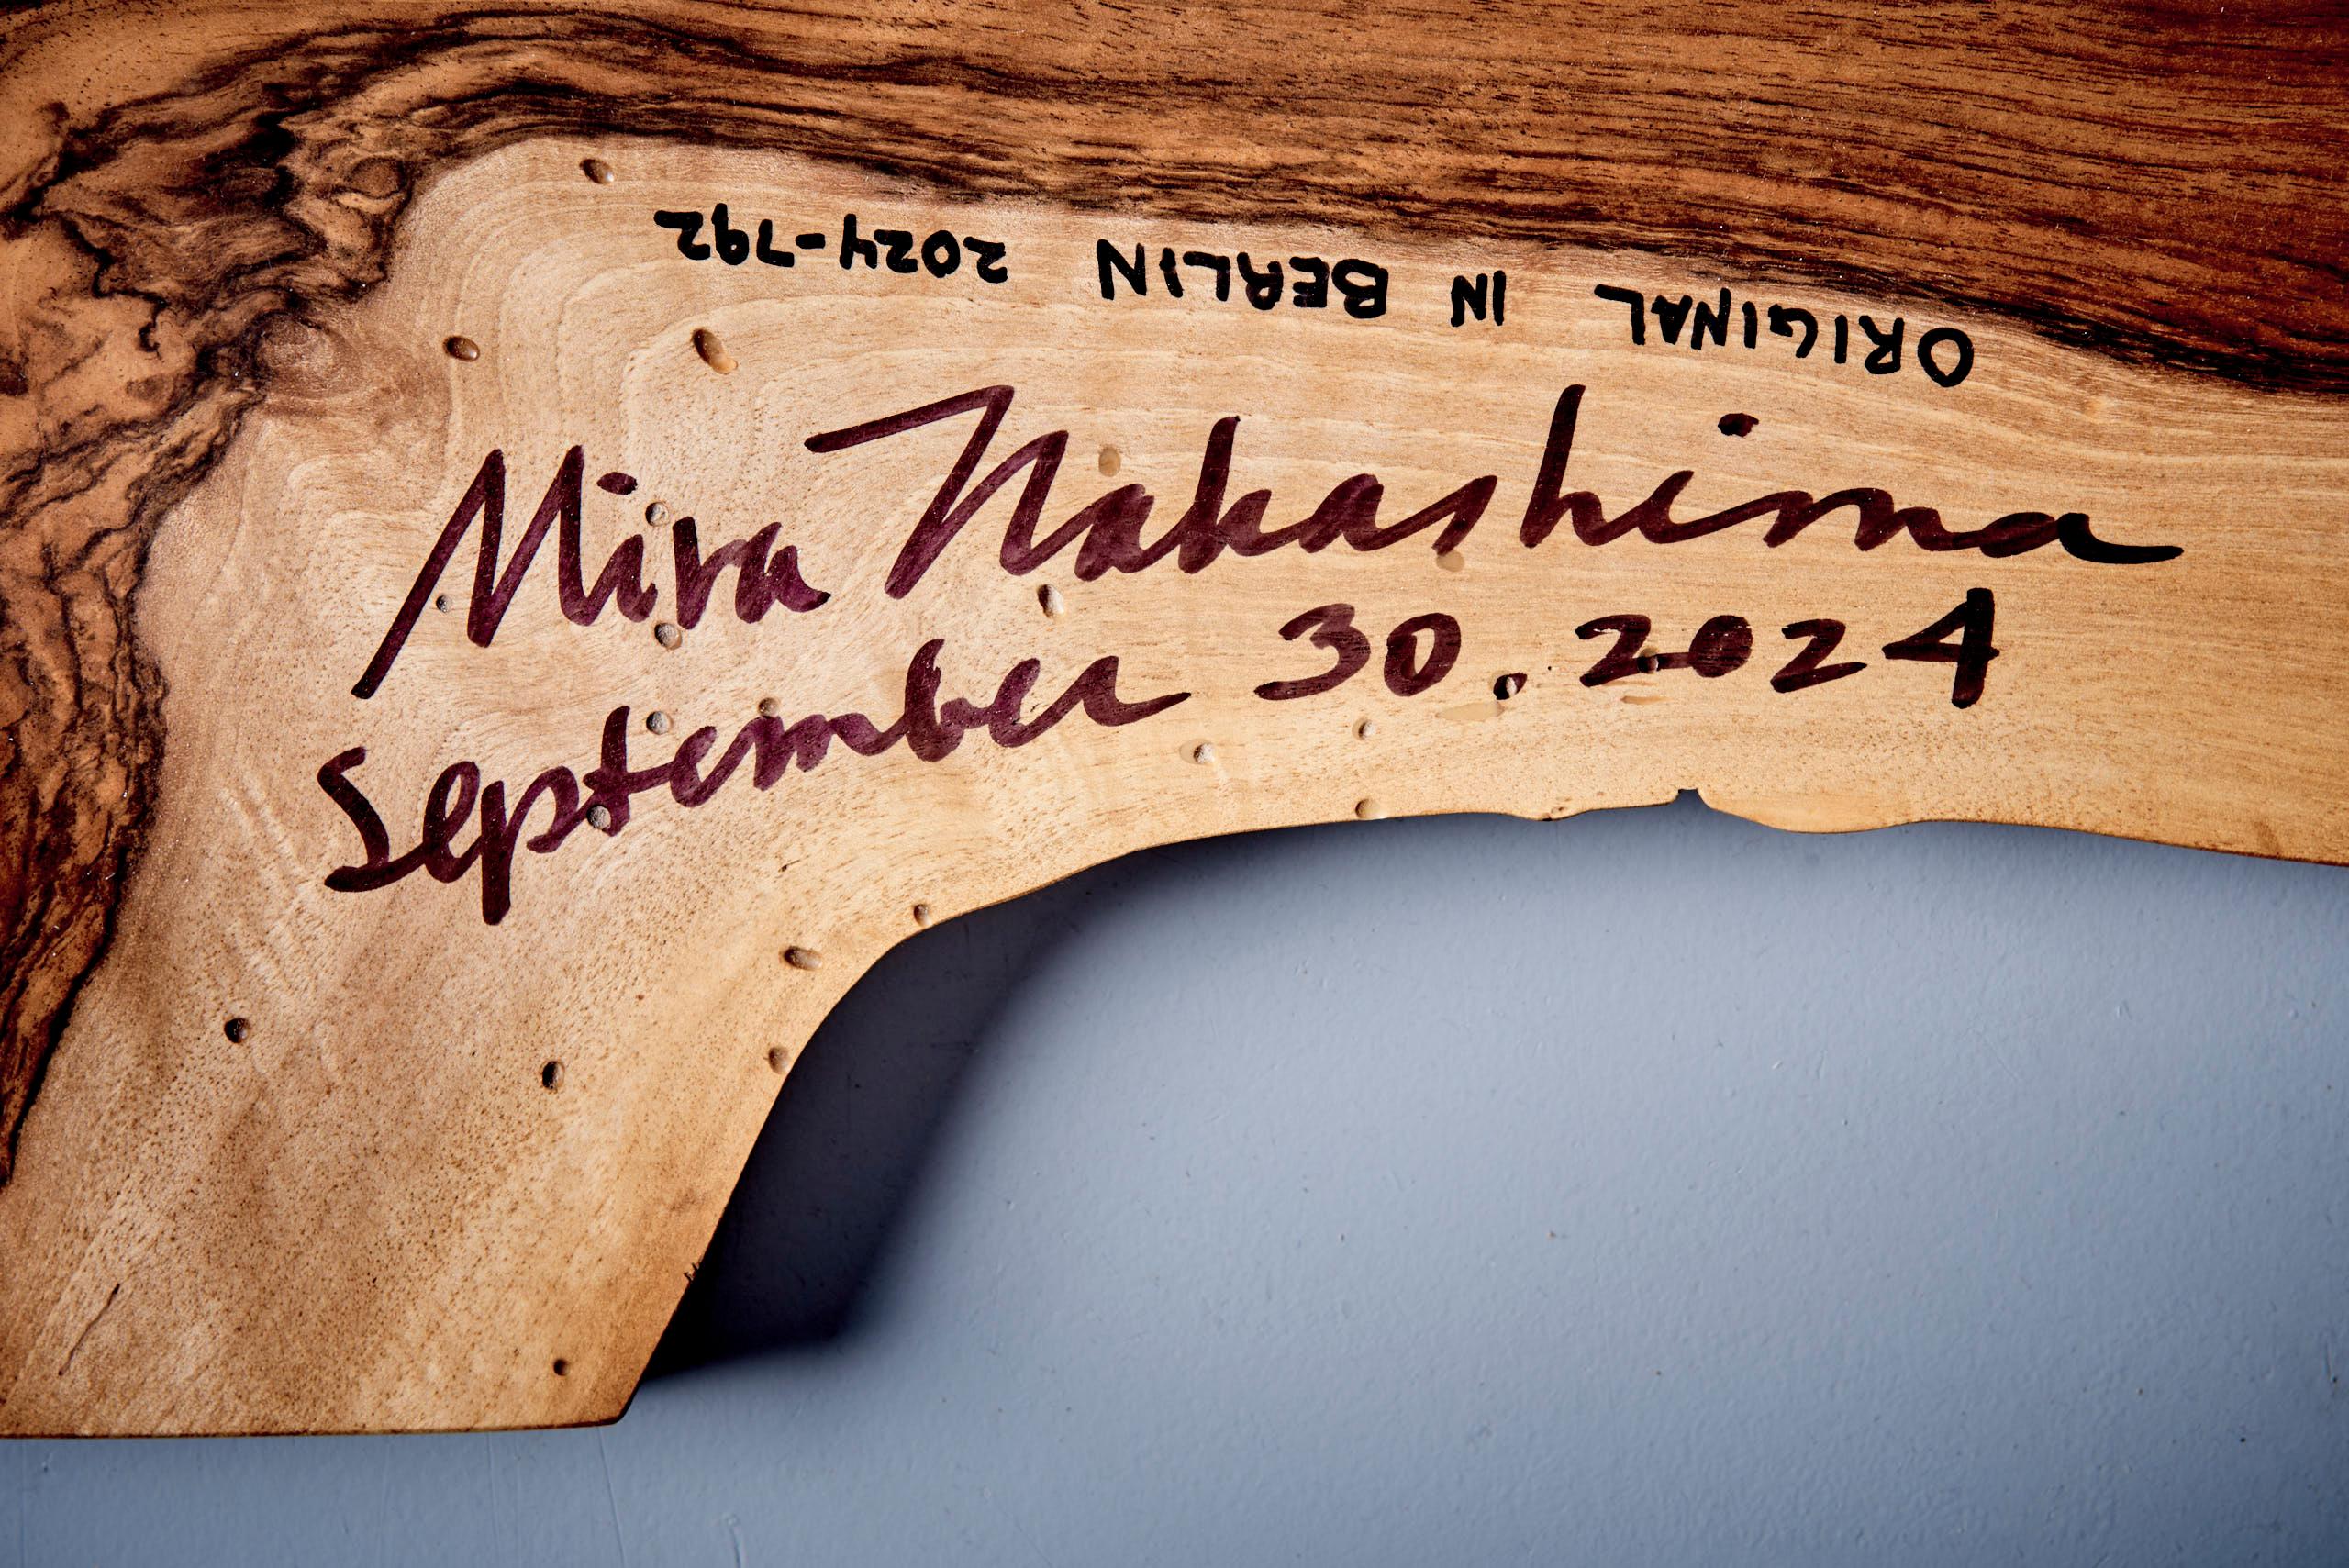 ORIGINAL IN BERLIN 2024-792
Mira Nakashima
September 30. 2024